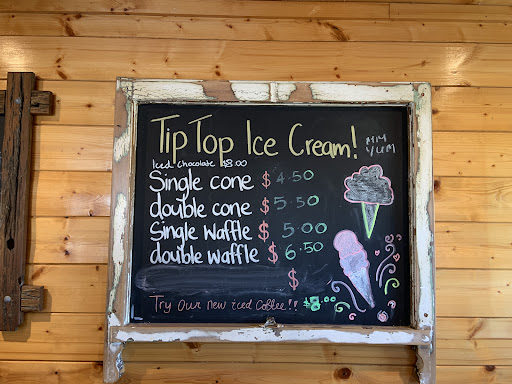 Tip Top Ice Cream!
MM
YUM
Iced chocolate $8.00
Single cone $4.50
double cone $5.50
Single Waffle $5.00
double waffle $6.50
$
Try Our new iced Coffee!! $8.00